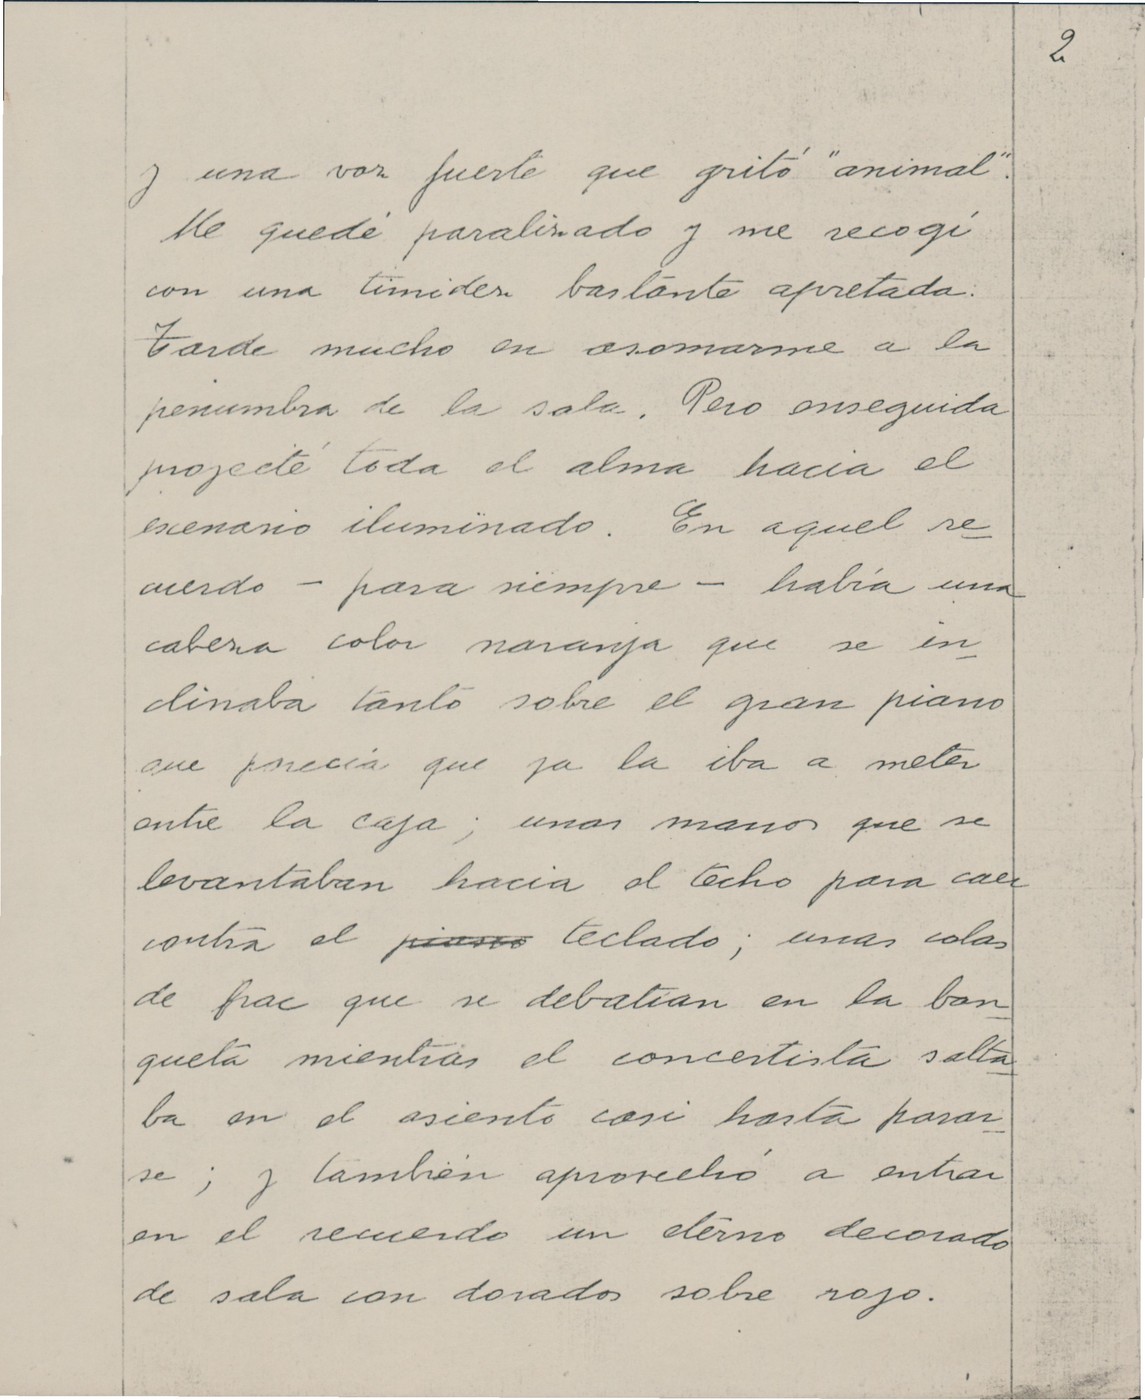 2
y una voz fuerte que gritó "animal".
Me quedé paralizado y me recogí
con una timidez bastante apretada.
Tarde mucho en asomarme a la
penumbra de la sala. Pero enseguida
proyecté toda el alma hacia el
escenario iluminado. En aquel re-
cuerdo - para siempre - había una
cabeza color naranja que se in-
clinaba tanto sobre el gran piano
que parecía que ya la iba a meter
entre la caja; unas manos que se
levantaban hacia el techo para caer
contra el piano teclado; unas colas
de frac que se debatian en la ban-
queta mientras el concertista salta-
ba en el asiento casi hasta parar-
se; y también aprovechó a entrar
en el recuerdo un eterno decorado
de sala con dorados sobre rojo.